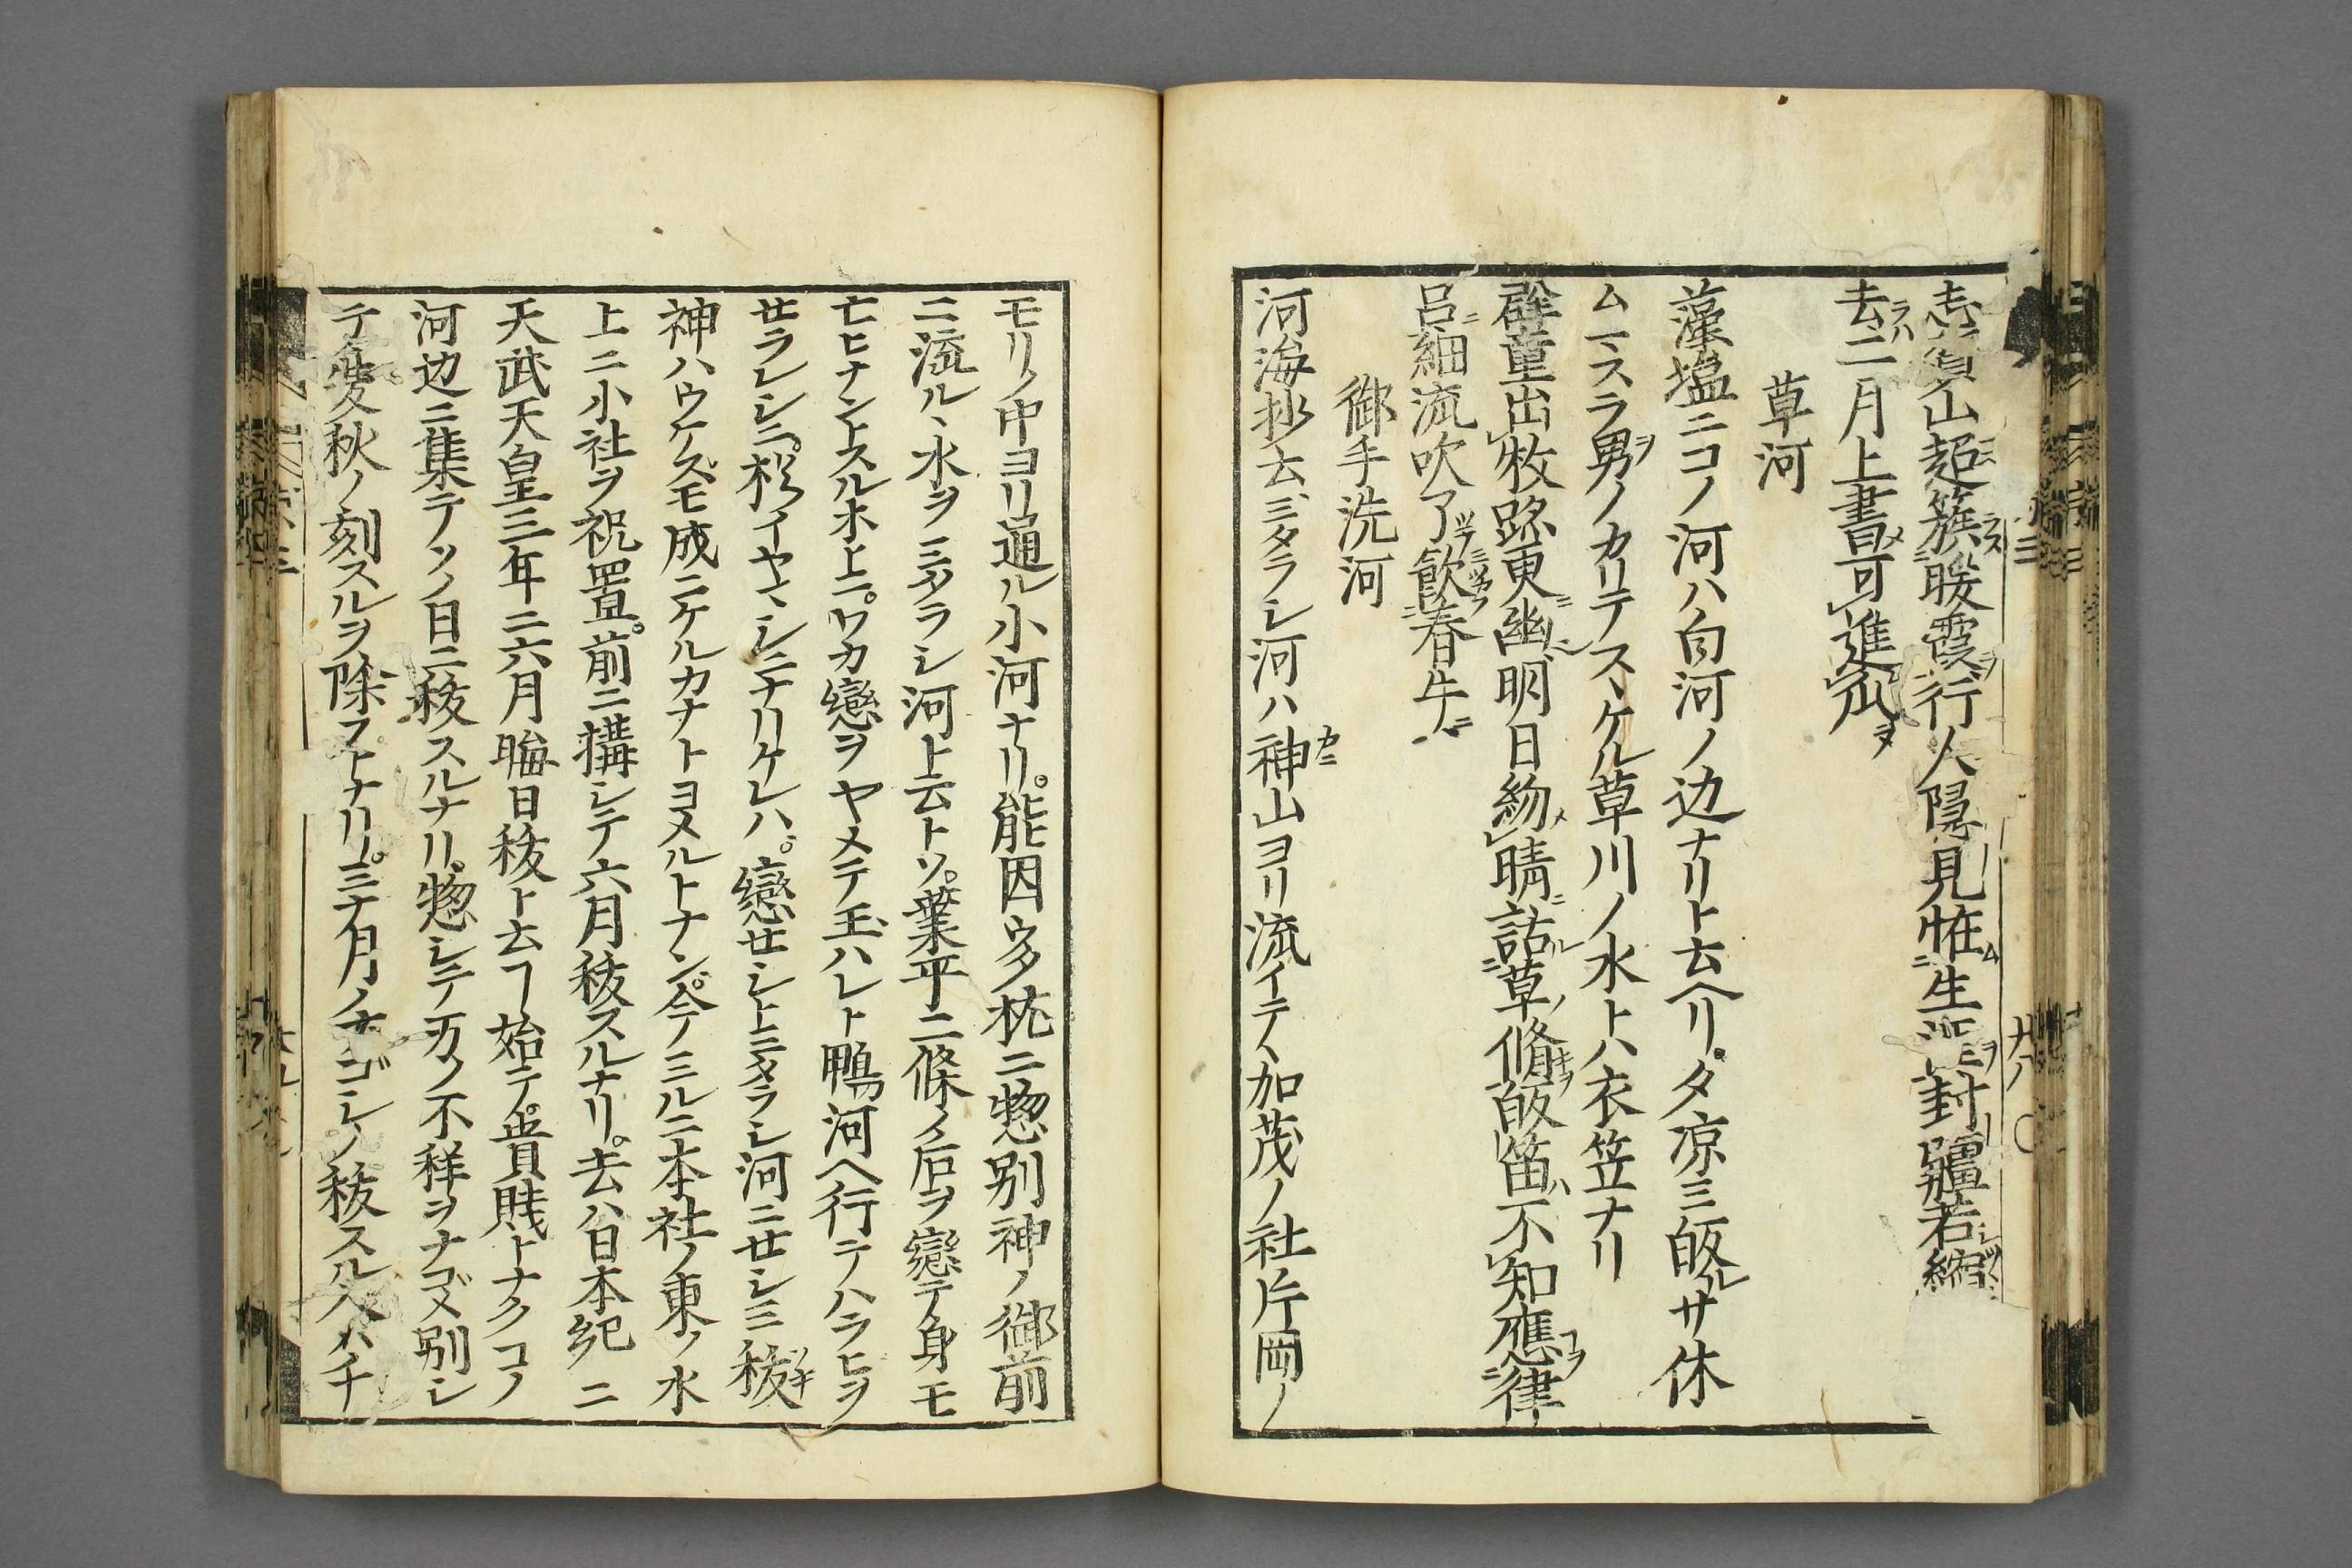 志賀山超簇暖霞行人隠見恠生封疆若縮
去二月上書可進仙
草河
藻塩ニコノ河ハ白河ノ辺ナリト云ヘリ夕凉ミ皈ルサ休
ムマスラ男ノカリテスヽケル草川ノ水トハ衣笠ナリ
群童出牧路更幽明日紛晴詰草脩皈笛不知應律
呂細流吹了飲春牛
御手洗河
河海抄云ミタラシ河ハ神山ヨリ流イテヽ加茂ノ社片岡ノ
モリノ中ヨリ通ル小河ナリ。能因ウタ枕ニ惣別神ノ御前
ニ流ルヽ水ヲミタラシ河ト云トソ。業平二條ノ后ヲ戀テ身モ
亡ヒナントスルホトニ。ワカ戀ヲヤメテ玉ハレト鴨河ヘ行テハラヒヲ
セラレシニ。彬イヤマシニナリケレハ。戀セシトミタラシ河ニセシミ秡
神ハウケスモ成ニケルカナトヨメルトナン。今ミルニ本社ノ東ノ水
上ニ小社ヲ祝置。前ニ構シテ六月秡スルナリ。去ハ日本紀ニ
天武天皇三年ニ六月晦日秡ト云ヿ始テ。貴賎トナクコノ
河辺ニ集テソノ日ニ秡スルナリ。惣シテ万ノ不祥ヲナゴメ別シ
テ夏秋ノ刻スルヲ除フトナリ。ミナ月ノナゴシノ秡スル人ハ千